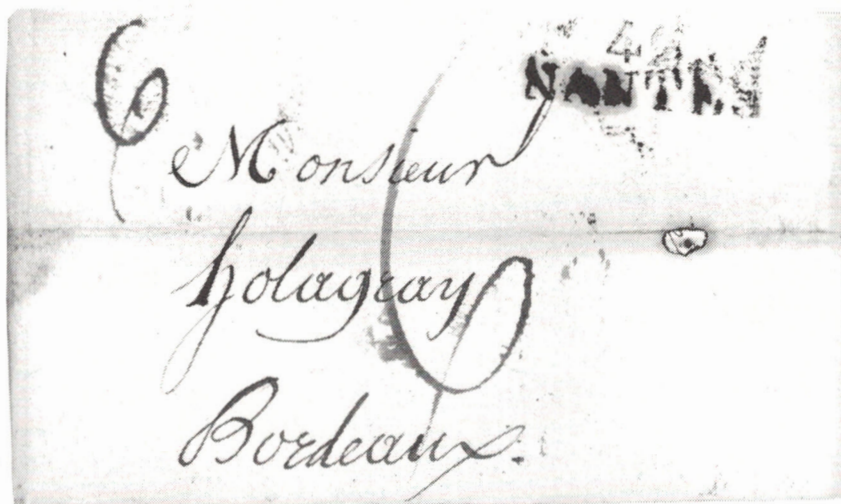 42
NANTES
6
6
Monsieur
holagray
Bordeaux.